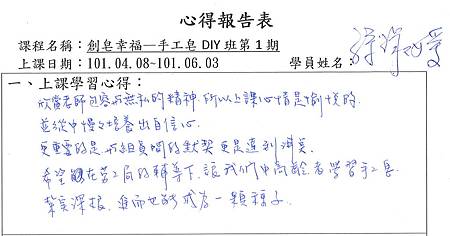 心得報告表
課程名稱：創皂幸福—手工皂 DIY 班第 1 期
上課日期：101.04.08~101.06.03
學員姓名：
一、上課學習心得：
欣賞老師包容而無私的精神，所以上課心情是愉悅的
並從中慢慢培養出自信心
更重要的是同組員間的默契更是達到
希望能在勞工局的輔導下讓我們中高齡者學習手工皂
紮實深根，進而也能成為一顆種子